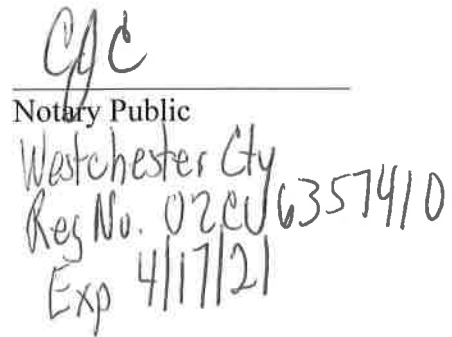 CJC
Notary Public
Westchester Cty
Reg No. 02CU6357410
Exp 4/17/21